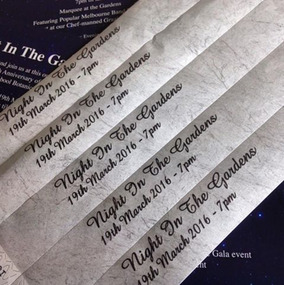 Marquee at the Gardens
Featuring Popular Melbourne
+ at our Chef-manned
In The Ga
and join us at this
Anniversary of
School Botanic
Night In The Gardens
19th March 2016 - 7pm
Night In The Gardens
19th March 2016 - 7pm
Night In The Gardens
19th March 2016 - 7pm
Night In The Gardens
19th March 2016 - 7pm
Night In The Gardens
19th March 2016 - 7pm
Gala event